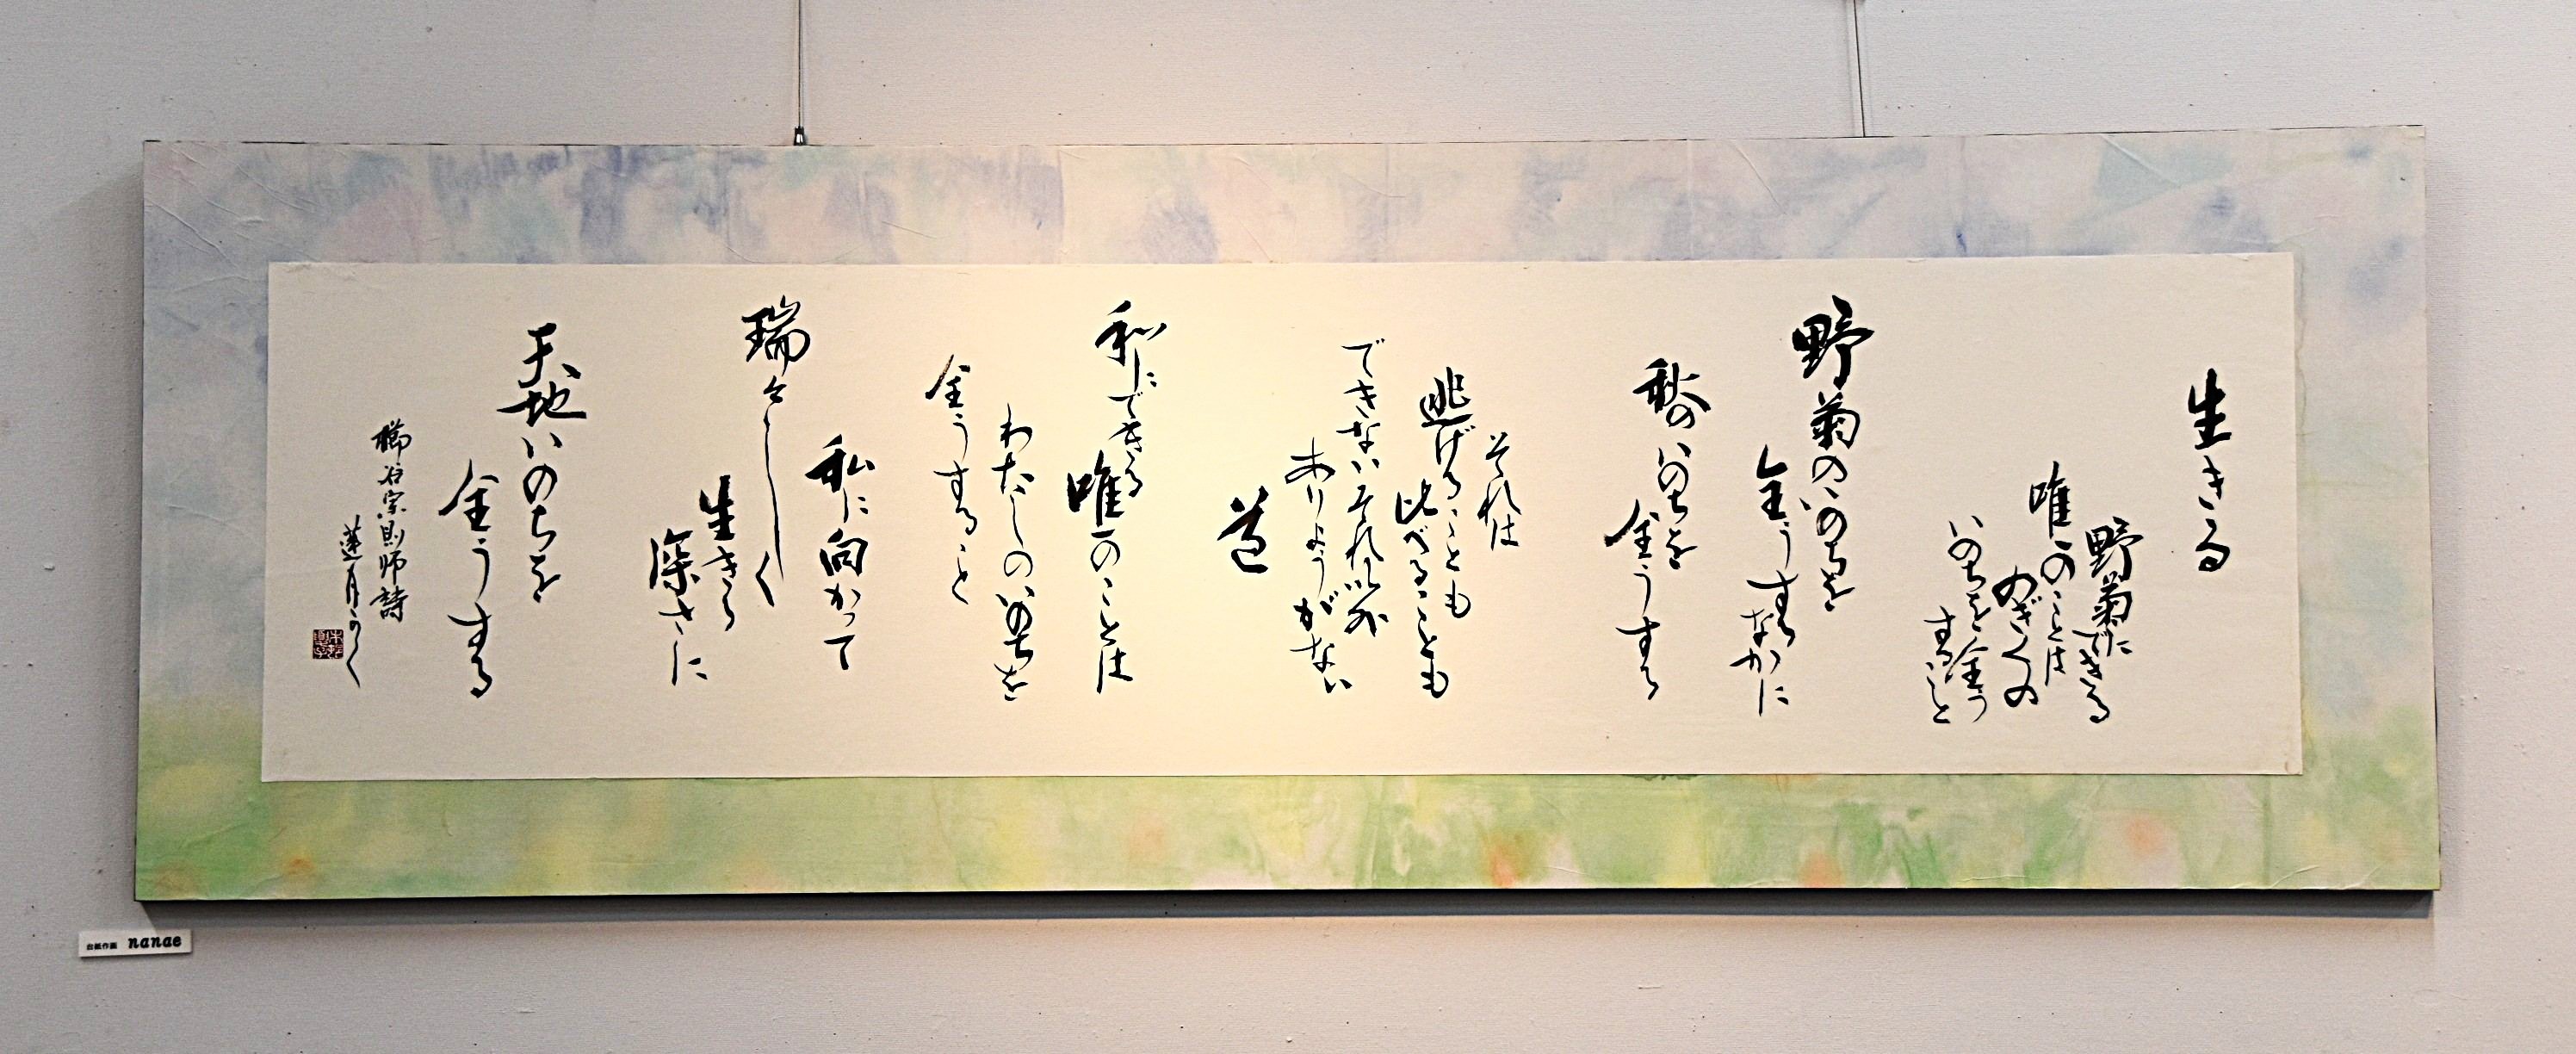 生きる
野菊にできる
唯一のことは
のぎくの
いのちを全う
すること
野菊のいのちを
全うするなかに
秋のいのちを
全うする
それは
逃げることも
比べることも
できないそれ以外
ありようがない
道
私にできる
唯一のことは
わたしのいのちを
全うすること
私に向かって
瑞々しく
生きる
深さに
天地いのちを
全うする
櫛谷宗則師詩
蓮月かく
台紙作画 nanae